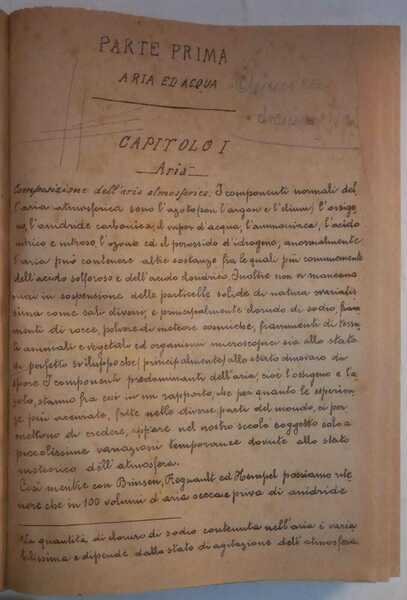 PARTE PRIMA
ARIA ED ACQUA
CAPITOLO I
Aria
Composizione dell'aria atmosferica. I componenti normali del
l'aria atmosferica sono l'azoto (con l'argon e l'elium) l'ossige
no, l'anidride carbonica, il vapor d'acqua, l'ammoniaca, l'acido
nitrico e nitroso, l'ozono ed il perossido d'idrogeno, anormalmente
l'aria può contenere altre sostanze fra le quali più comunemente
dell'acido solforoso e dell'acido cloridrico. Inoltre non vi mancano
mai in sospensione delle particelle solide di natura svariatis
sima come sali diversi, e principalmente cloruro di sodio, fram
menti di rocce, polvere di meteore cosmiche, frammenti di tessu
ti animali e vegetali ed organismi microscopici sia allo stato
di perfetto sviluppo che (principalmente) allo stato di
spore I componenti predominanti dell'aria, cioè l'ossigeno e l'a
zoto, stanno fra loro in un rapporto, che per quanto le esperien
ze più accurate, fatte nelle diverse parti del mondo, ci per
mettono di credere, appare nel nostro secolo soggetto solo a
piccolissime variazioni temporanee dovute allo stato
meteorico dell'atmosfera.
Così mentre con Bunsen, Regnault ed Hempel possiamo rite
nere che in 100 volumi d'aria secca e priva di anidride
La quantità di cloruro di sodio contenuta nell'aria è varia
bilissima e dipende dallo stato di agitazione dell'atmosfera